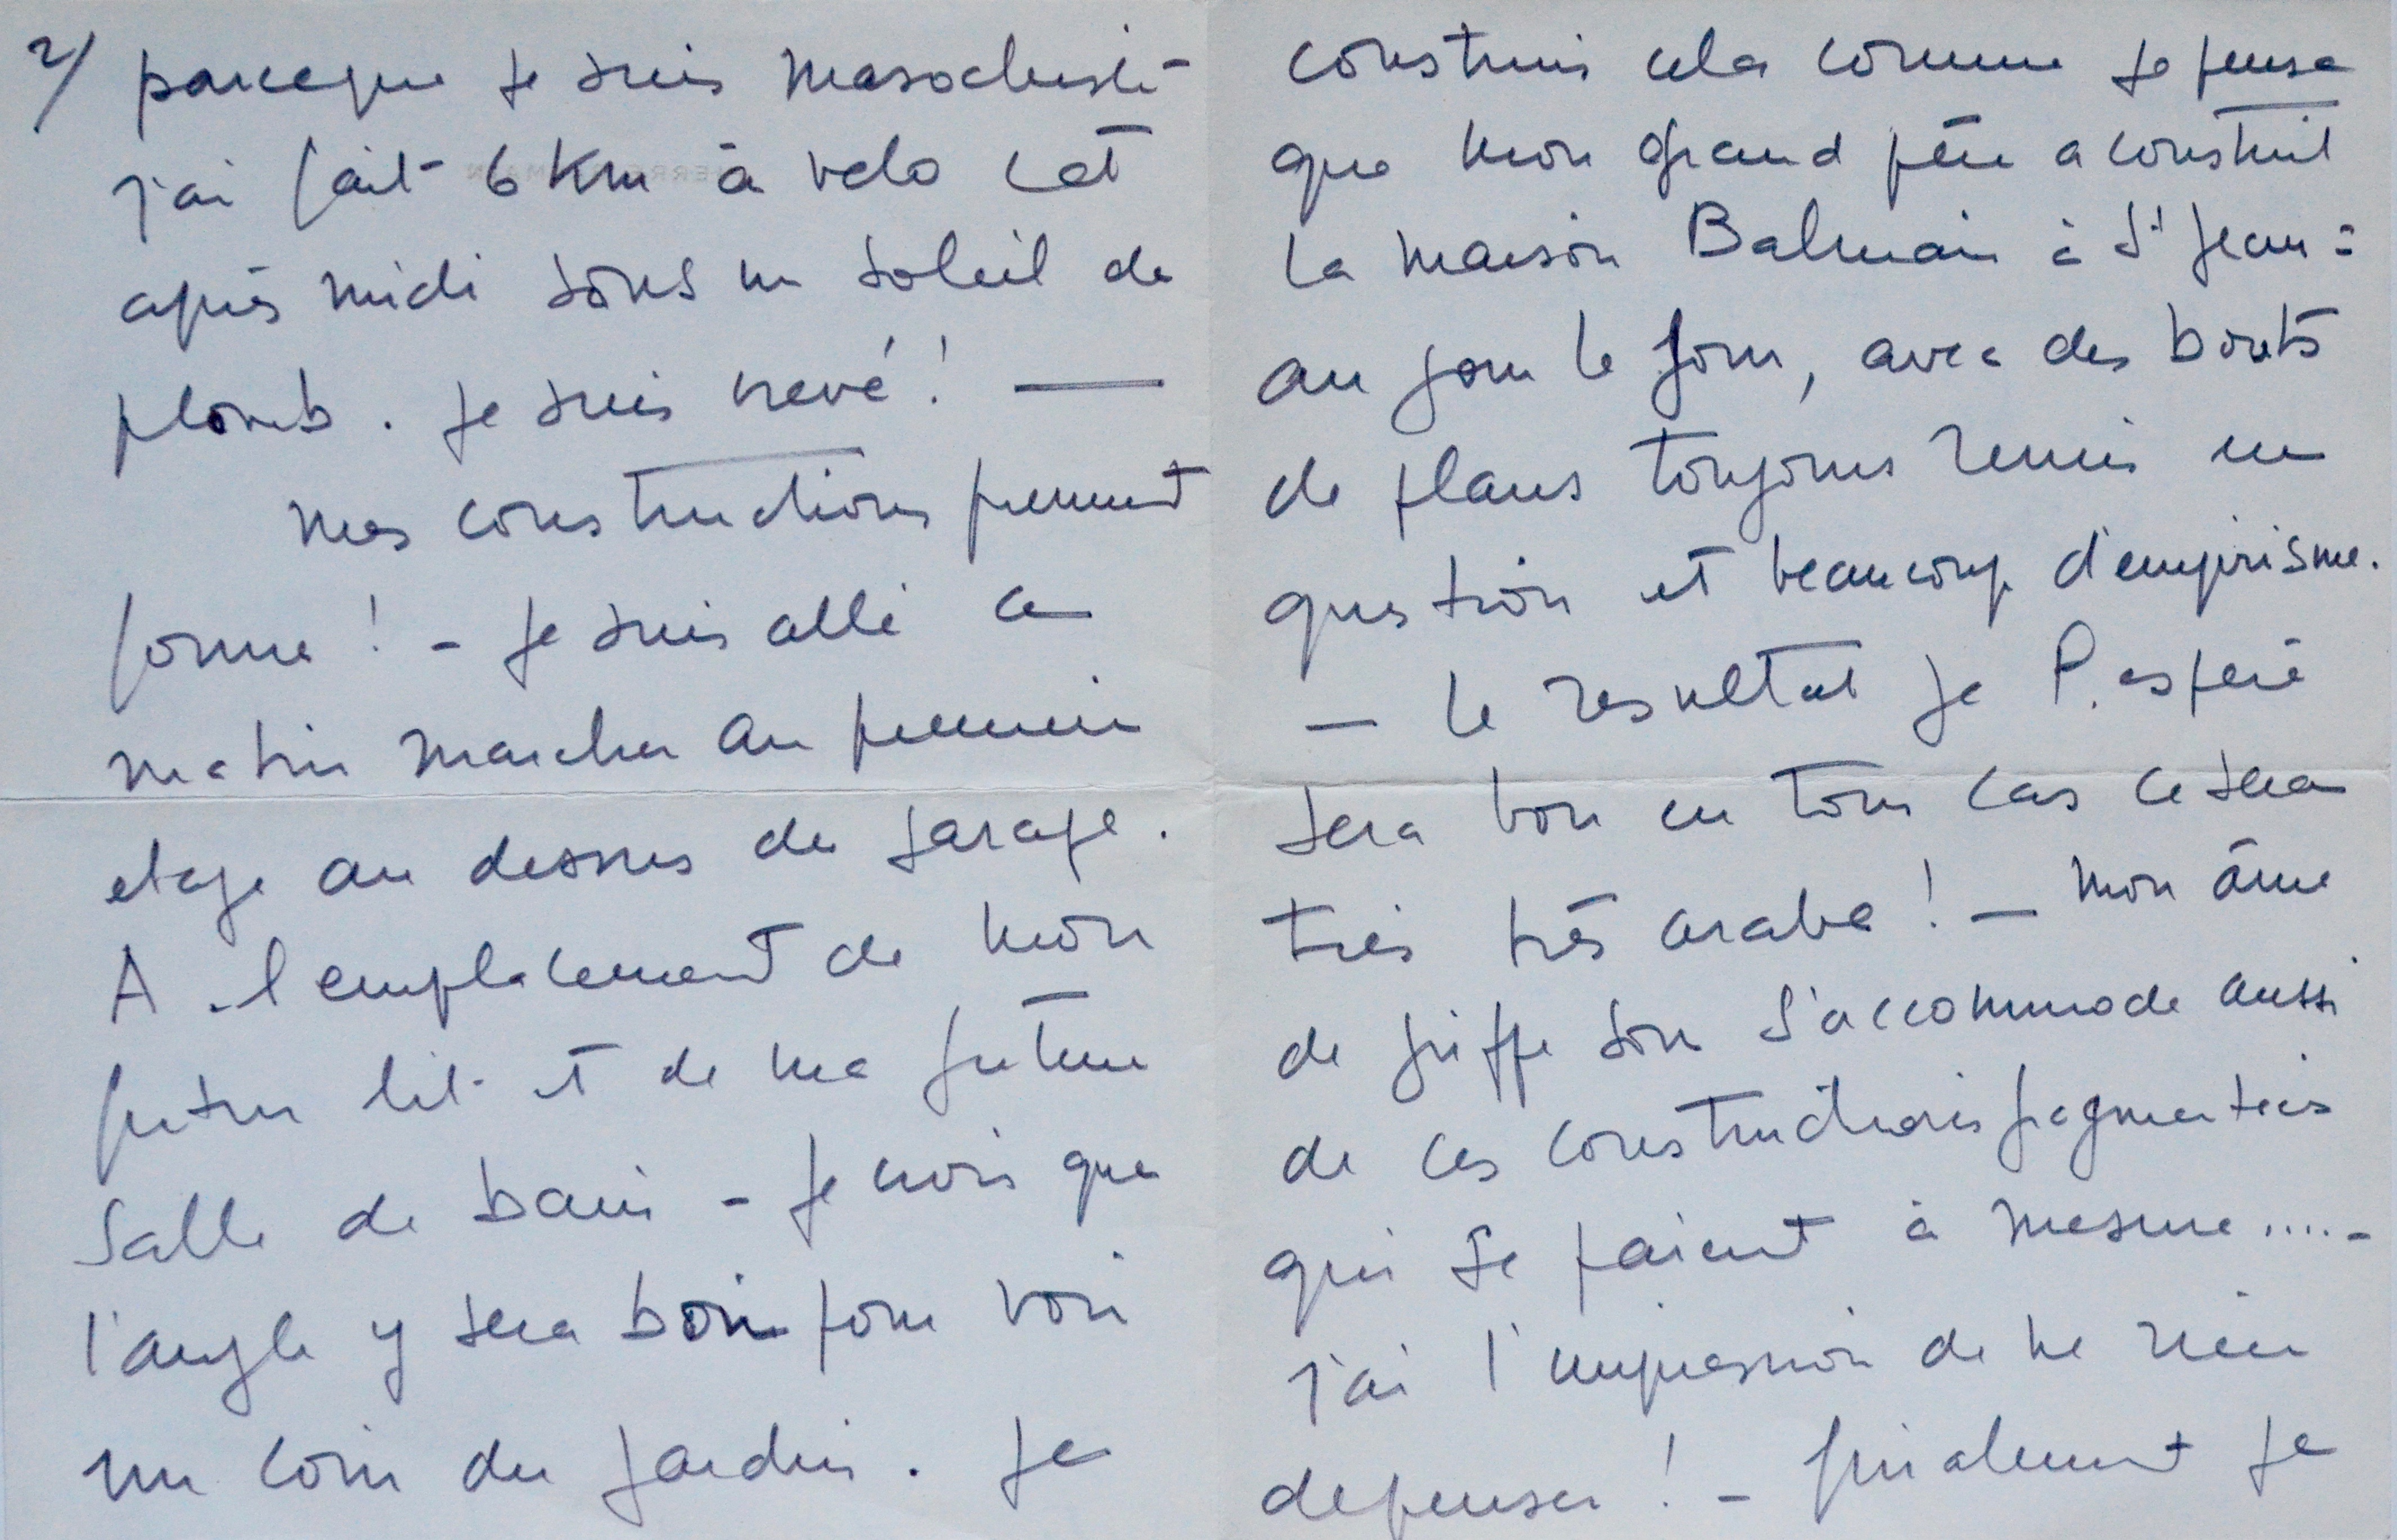 2/ parceque je suis masochiste -
j'ai fait 6 Km à velo cet
après midi sous un soleil de
plomb . je suis crevé ! —
mes constructions prennent
forme ! - je suis allé ce
matin marcher au premier
etage au dessus du garage .
A l'emplacement de mon
futur lit et de ma future
salle de bain - je crois que
l'angle y sera bon pour voir
un coin du jardin . je
construis cela comme je pense
que mon grand père a construit
la maison Balmain à St Jean :
au jour le jour, avec des bouts
de plans toujours remis en
question et beaucoup d'empirisme.
— le resultat je l'espère
sera bon en tous cas ce sera
très très arabe ! — mon âme
de griffe son s'accommode aussi
de ces constructions fragmentées
qui se paient à mesure .... -
j'ai l'impression de ne rien
depenser ! - finalement je